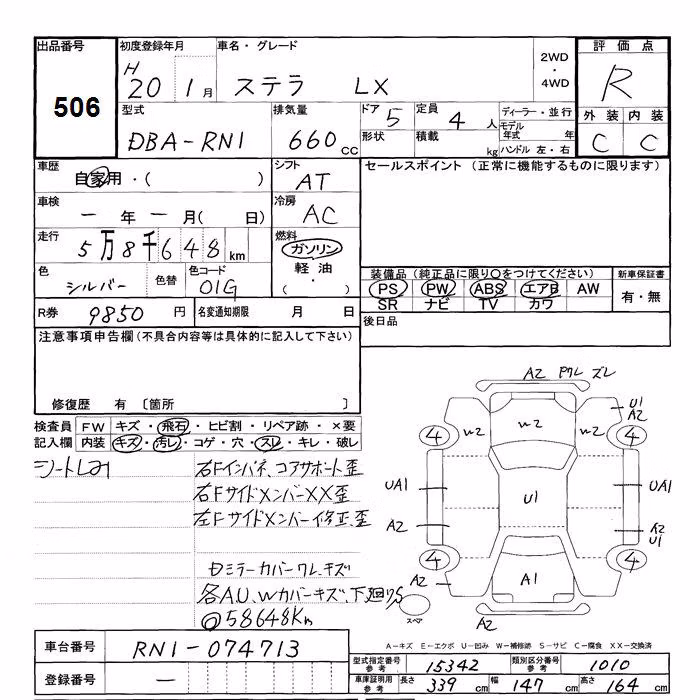 出品番号 506
初度登録年月 H 20 1月
車名・グレード ステラ LX
2WD・4WD
評価点 R
外装 内装
C C
型式 DBA-RN1
排気量 660 cc
ドア 5
定員 4人
形状 積載 kg
ディーラー・並行
モデル年式 年
ハンドル 左・右
車歴 自家用・( )
シフト AT
車検 ー年ー月( 日)
冷房 AC
走行 5万8千648km
燃料 ガソリン
軽油
( ・ )
色 シルバー 色替
色コード 01G
R券 9850円
名変通知期限 月 日
セールスポイント(正常に機能するものに限ります)
装備品(純正品に限り○をつけてください)
PS PW ABS エアB AW
SR ナビ TV カワ
新車保証書
有・無
後日品
注意事項申告欄(不具合内容等は具体的に記入して下さい)
修復歴 有 〔箇所 〕
検査員記入欄
FW キズ・飛石・ヒビ割・リペア跡・×要
内装 キズ・汚レ・コゲ・穴・スレ・キレ・破レ
右Fインパネ、コアサポート歪
右FサイドメンバーXX歪
左Fサイドメンバー修正、歪
ミラーカバーワレ、キズ
各AU、Wカバーキズ、下廻り
58648Km
A2 ワレ ズレ
U1
A2
W2 W2 W2
4 4
UA1 U1 UA1
A2 A2
U1
4 4
A2 A1
スペア
A2
A-キズ E-エクボ U-凹み W-補修跡 S-サビ C-腐食 XX-交換済
車台番号 RN1-074713
登録番号 ー
型式指定番号 参考 15342
類別区分番号 参考 1010
車庫証明用 参考 長さ 339cm 幅 147cm 高さ 164cm